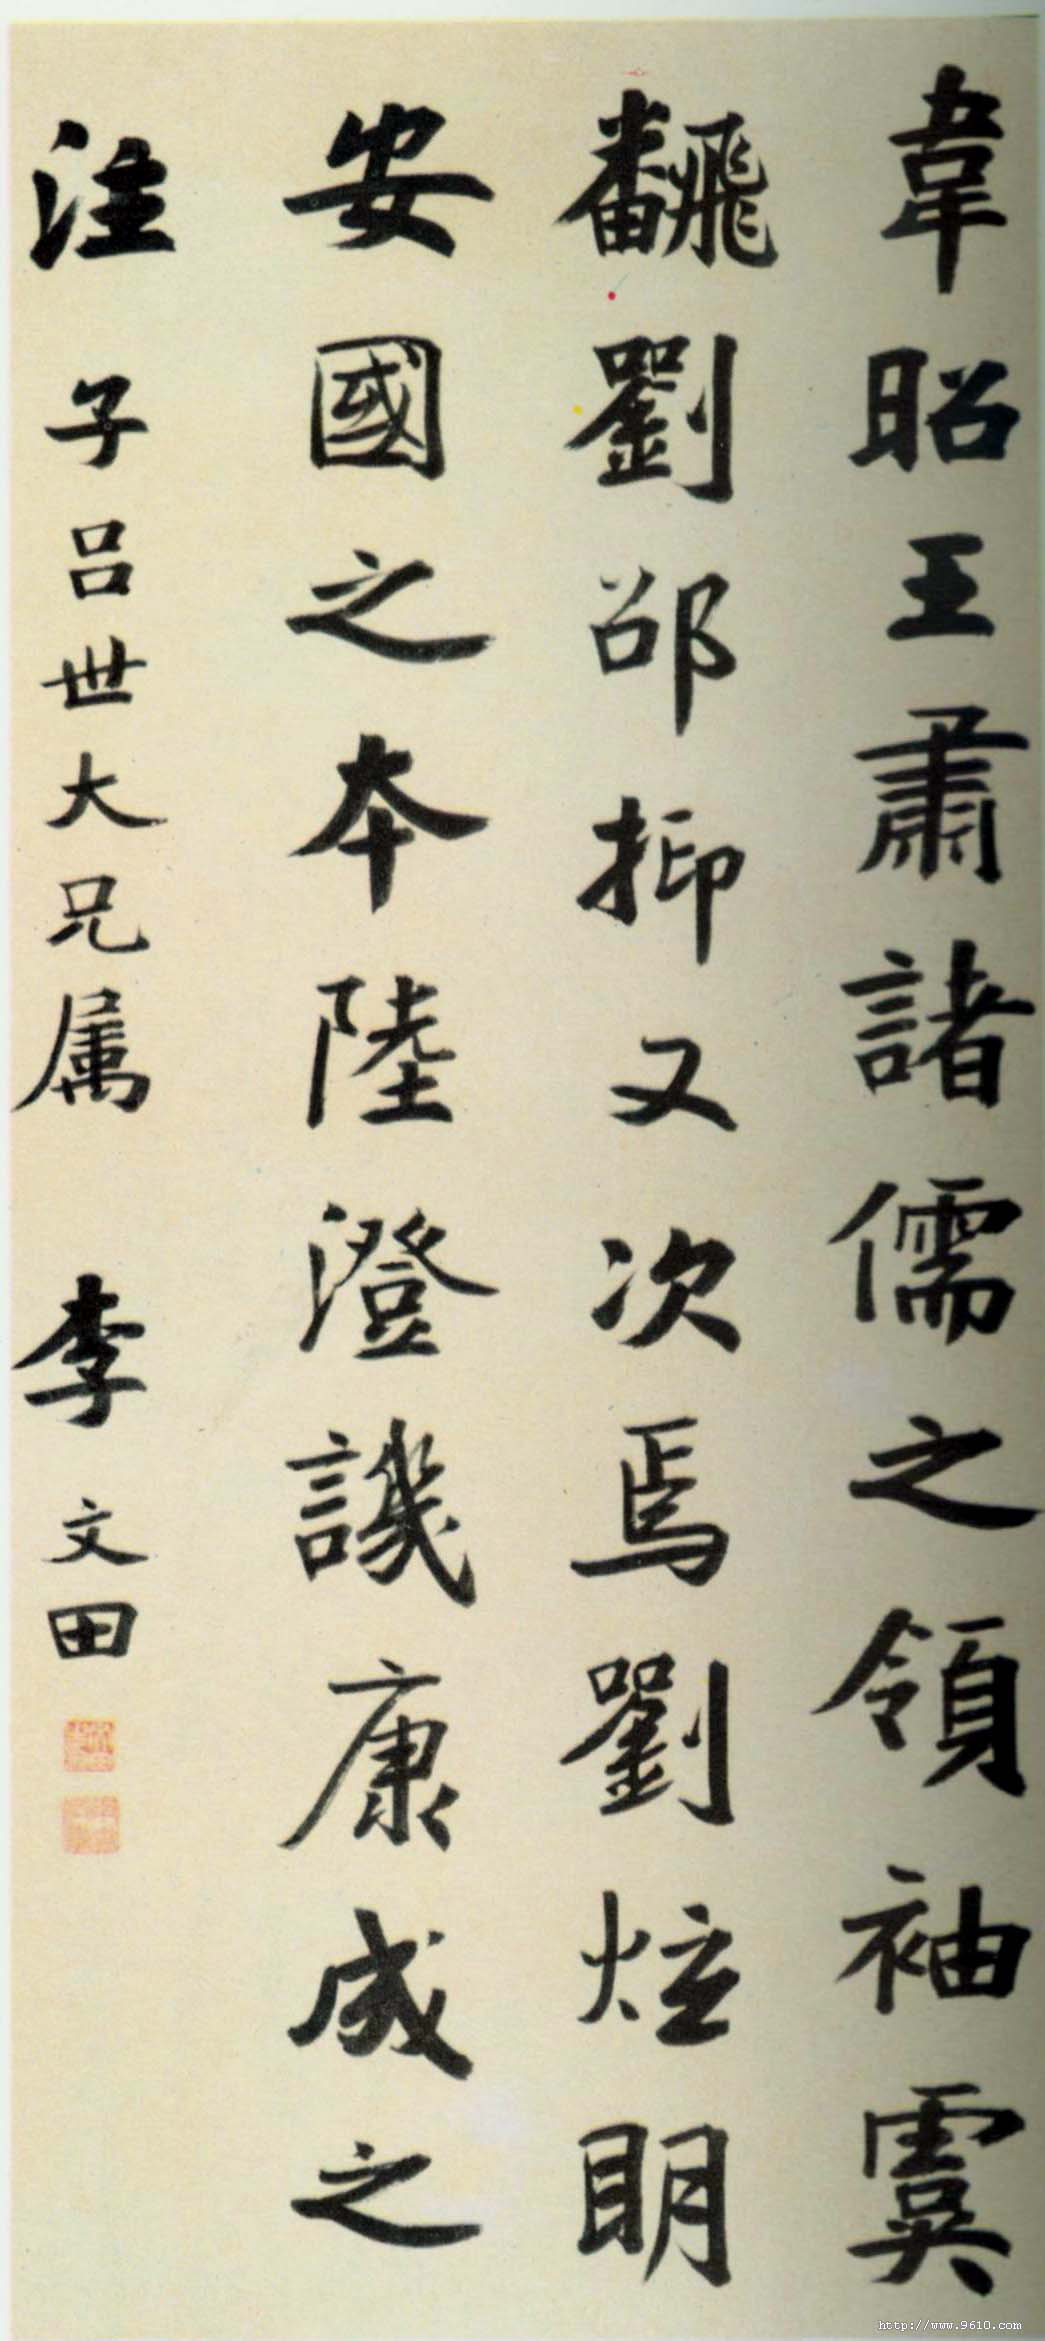 韋昭王肅諸儒之領袖虞
飜劉邵抑又次焉劉炫明
安國之本陸澄譏康成之
注 子呂世大兄属 李文田
http://www.9610.com